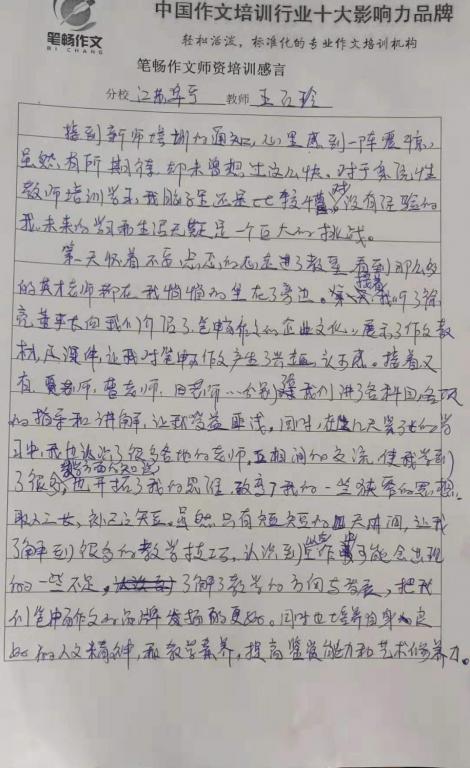 中国作文培训行业十大影响力品牌
笔畅作文
BI CHANG
轻松活泼,标准化的专业作文培训机构
笔畅作文师资培训感言
分校 江苏阜宁 教师 王红珍
接到新师培训的通知,心里感到一阵震惊,
虽然有所期待,却未曾想土这么快。对于系统性
教师培训学习,我脑子里还是比较懵,对没有经验的
我,未来的学习和生活无疑是一个巨大的挑战。
第一天怀着不安忐忑的心走进了教室,看到那么多
的英才老师都在,我悄悄的坐在了旁边。接着,我听了
董事长向我们介绍了笔畅作文的企业文化,展示了作文教
材及课件,让我对笔畅作文产生了兴趣,认可感。接着又
有夏老师,曹老师,田老师……分别跟我们讲了各科目各项
的指导和讲解,让我受益匪浅,同时,在这几天紧张的学
习中,我也认识了很多各地的老师,互相间的交流,使我学到
了很多教学方面的知识,也开拓了我的思维,改变了我的一些狭窄的思想,
取人之长,补己之短。虽然只有短短的四天时间,让我
了解到很多的教学技巧,认识到可能会出现
的一些不足,了解了教学的方向与发展,把我
们笔畅作文的品牌发扬的更好。同时也培养自身良
好的人文精神,和教学素养,提高鉴赏能力和艺术修养力。